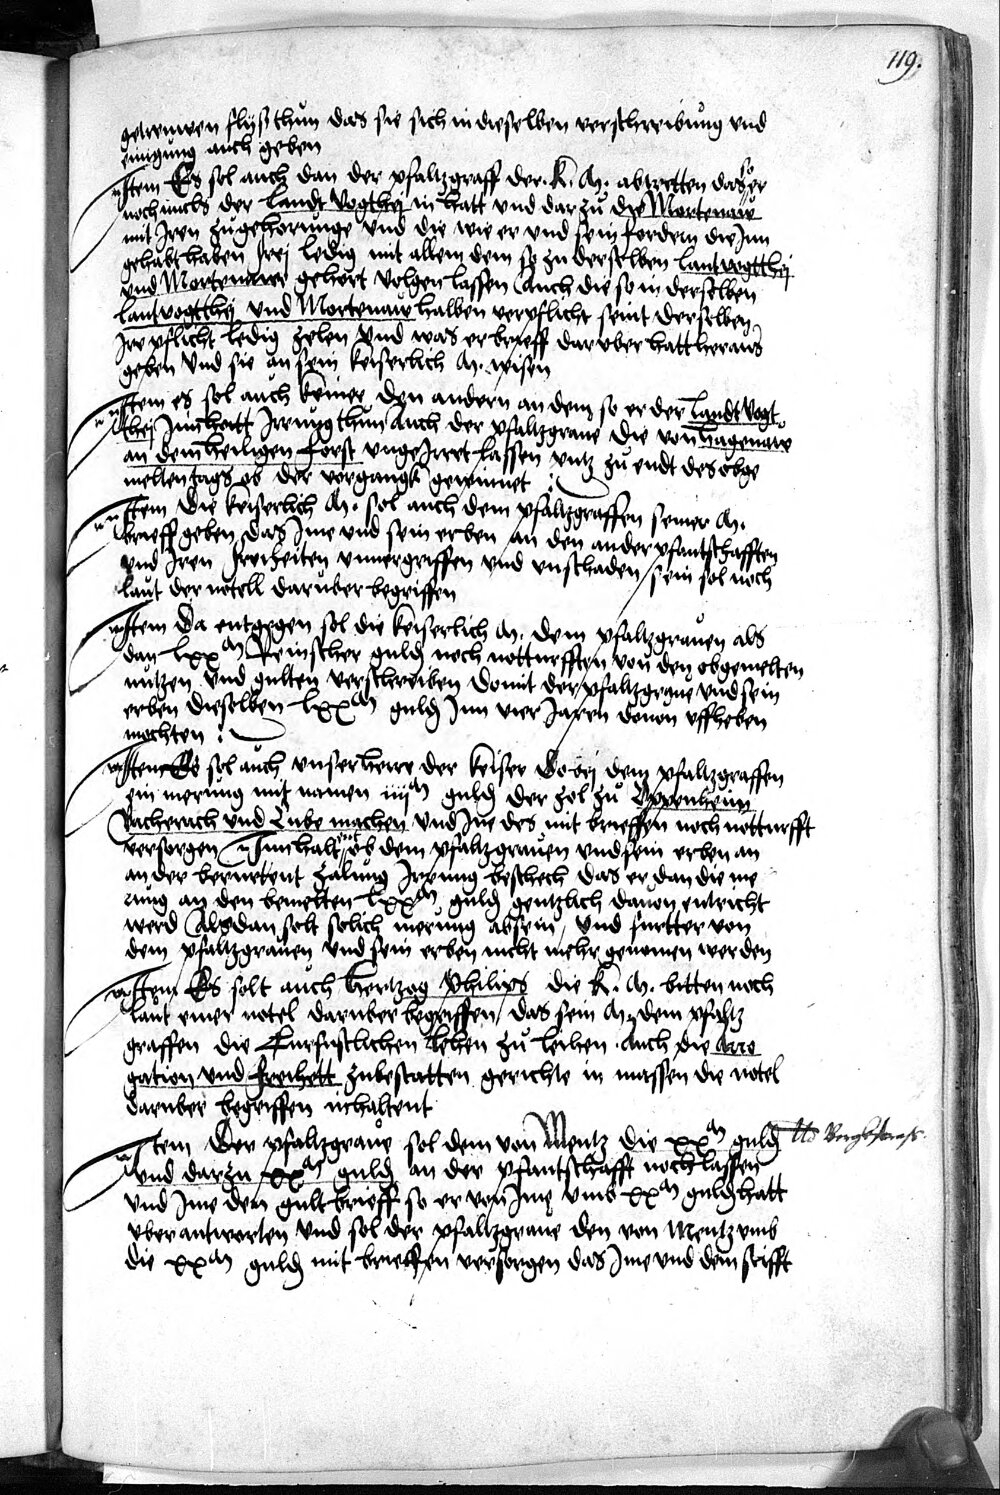 119.
getruwen flyß thun das sie sich in dieselben verschreibung und
einigung auch geben
Item Es sol auch dan der pfaltzgraff der K. M. abtretten das so er
nochmals der Landt Vogthej in hatt und dar zu die Mortenaw
mit Iren zugehorunge und die wie er und sein fordern die Inn
gehabt haben frej ledig mit allem dem so zu derselben lantvogtthej
und Mortenawe gehort volgen lassen Auch die so in derselben
lantvogtthej und Mortenaw halben verpflicht seint derselben
Ire pflicht ledig zelen und was er brieff daruber hatt heraus
geben und sie an sein keiserlich M. wisen
Item es sol auch keiner den andern an dem so er der Landt Vogt
thej Innhatt Irrung thun Auch der pfaltzgrave die von hagenaw
an dem heiligen forst ungeIrret lassen untz zu endt des obge
melten tags ob der vorgangk gewinnet
Item Die keiserlich M. sol auch dem pfaltzgraffen seiner M.
brieff geben das Ime und sein erben an den ander pfantschafften
und Iren freiheiten unvergriffen und unschaden sein sol noch
laut der notell daruber begriffen
Item Da entgegen sol die keiserlich M. dem pfaltzgraven als
dan lxx m Reinscher guld noch notturfften von den obgemelten
nutzen und gulten verschreiben Domit der pfaltzgrave und sein
erben dieselben lxx m guld Inn vier Jaren davon uffheben
mochten
Item Es sol auch unser herre der keiser Do bej dem pfaltzgraffen
ein merung mit namen iiij m guld der zol zu Oppenheim
Bacherach und Cube machen und Ime des mit brieffen noch notturfft
versorgen Innhalt ob dem pfaltzgraven und sein erben an
an der berurtent zalung Irrung beschech das er dan die me
rung an den bemelten lxx m guld gentzlich davon entricht
werd Alsdan solt solich merung absein und furtter von
dem pfaltzgraven und sein erben nicht mehr genomen werden
Item Es solt auch Hertzog Philips die K. M. bitten noch
laut einer notel daruber begriffen das sein M. dem pfaltz
graffen die Curfurstlichen lehen zu leihen Auch die Arro
gation und freihett zubestatten gerichte in massen die notel
daruber begriffen inhaltent
Item Der pfaltzgrave sol dem von Mentz die xx m guld
und darzu xx m guld an der pfantschafft noch lassen
und Ime den gult brieff so er von Ime umb xx m guld hatt
uberantworten und sol der pfaltzgrave den von Mentz umb
die xx m guld mit brieffen versorgen das Ime und dem stifft